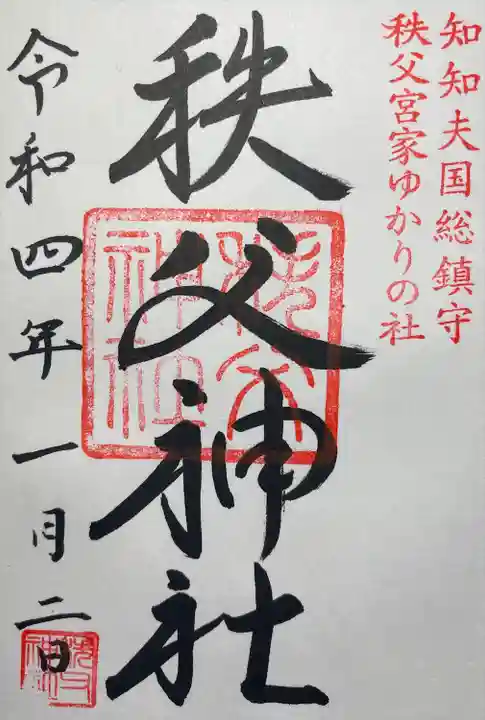 知知夫国総鎮守
秩父宮家ゆかりの社
秩父神社
秩父
神社
令和四年一月二日
秩父
神社